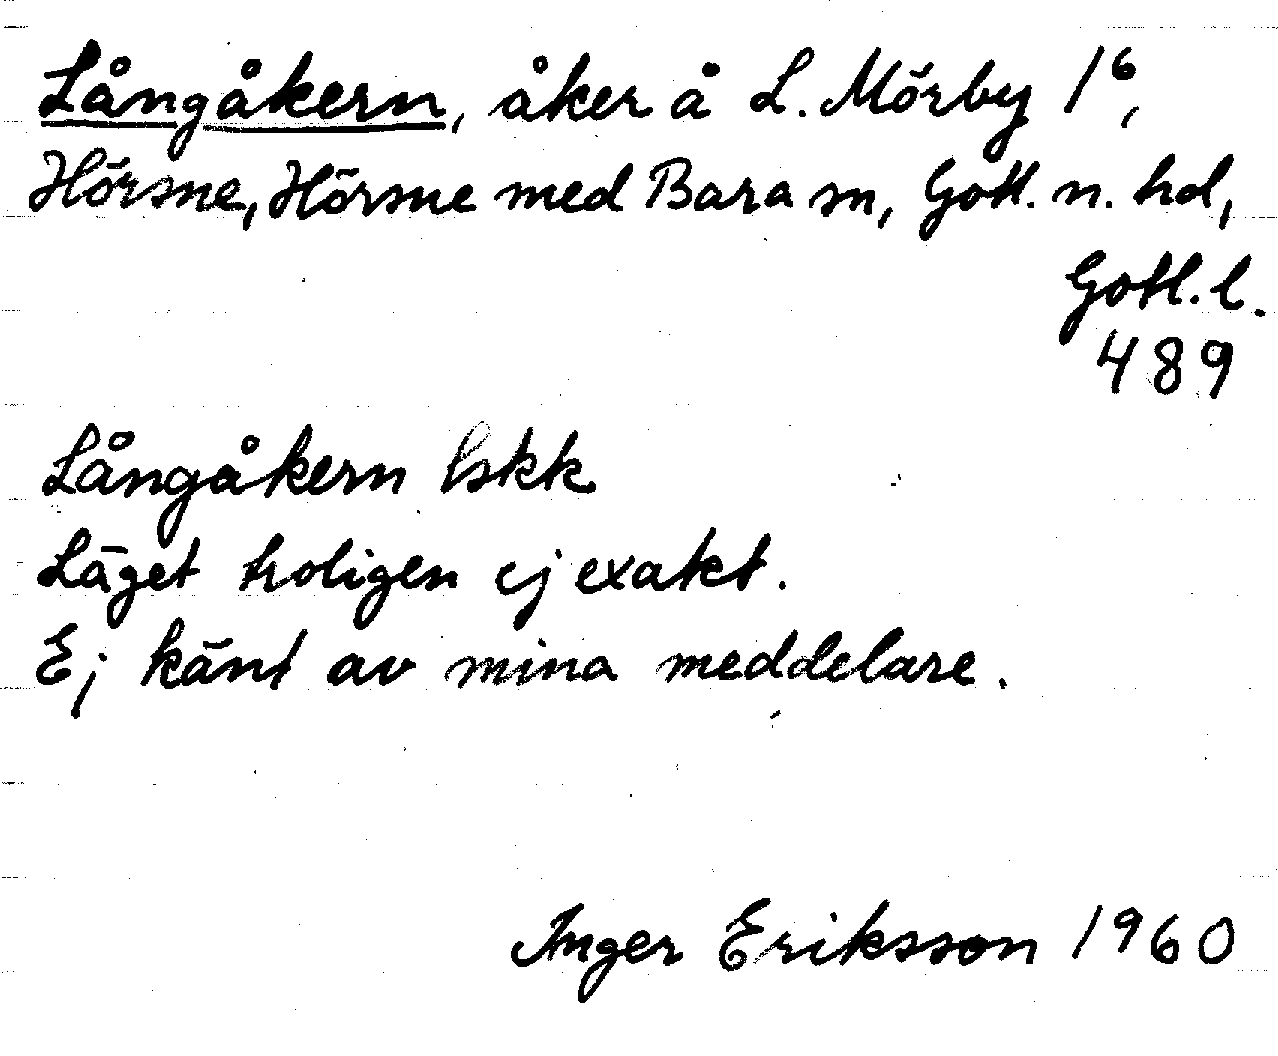 Långåkern, åker å L. Mörby 1⁶,
Hörsne, Hörsne med Bara sn, Gotl. n. hd,
Gotl. l.
489
Långåkern bskk
Läget troligen ej exakt.
Ej känt av mina meddelare.
Inger Eriksson 1960